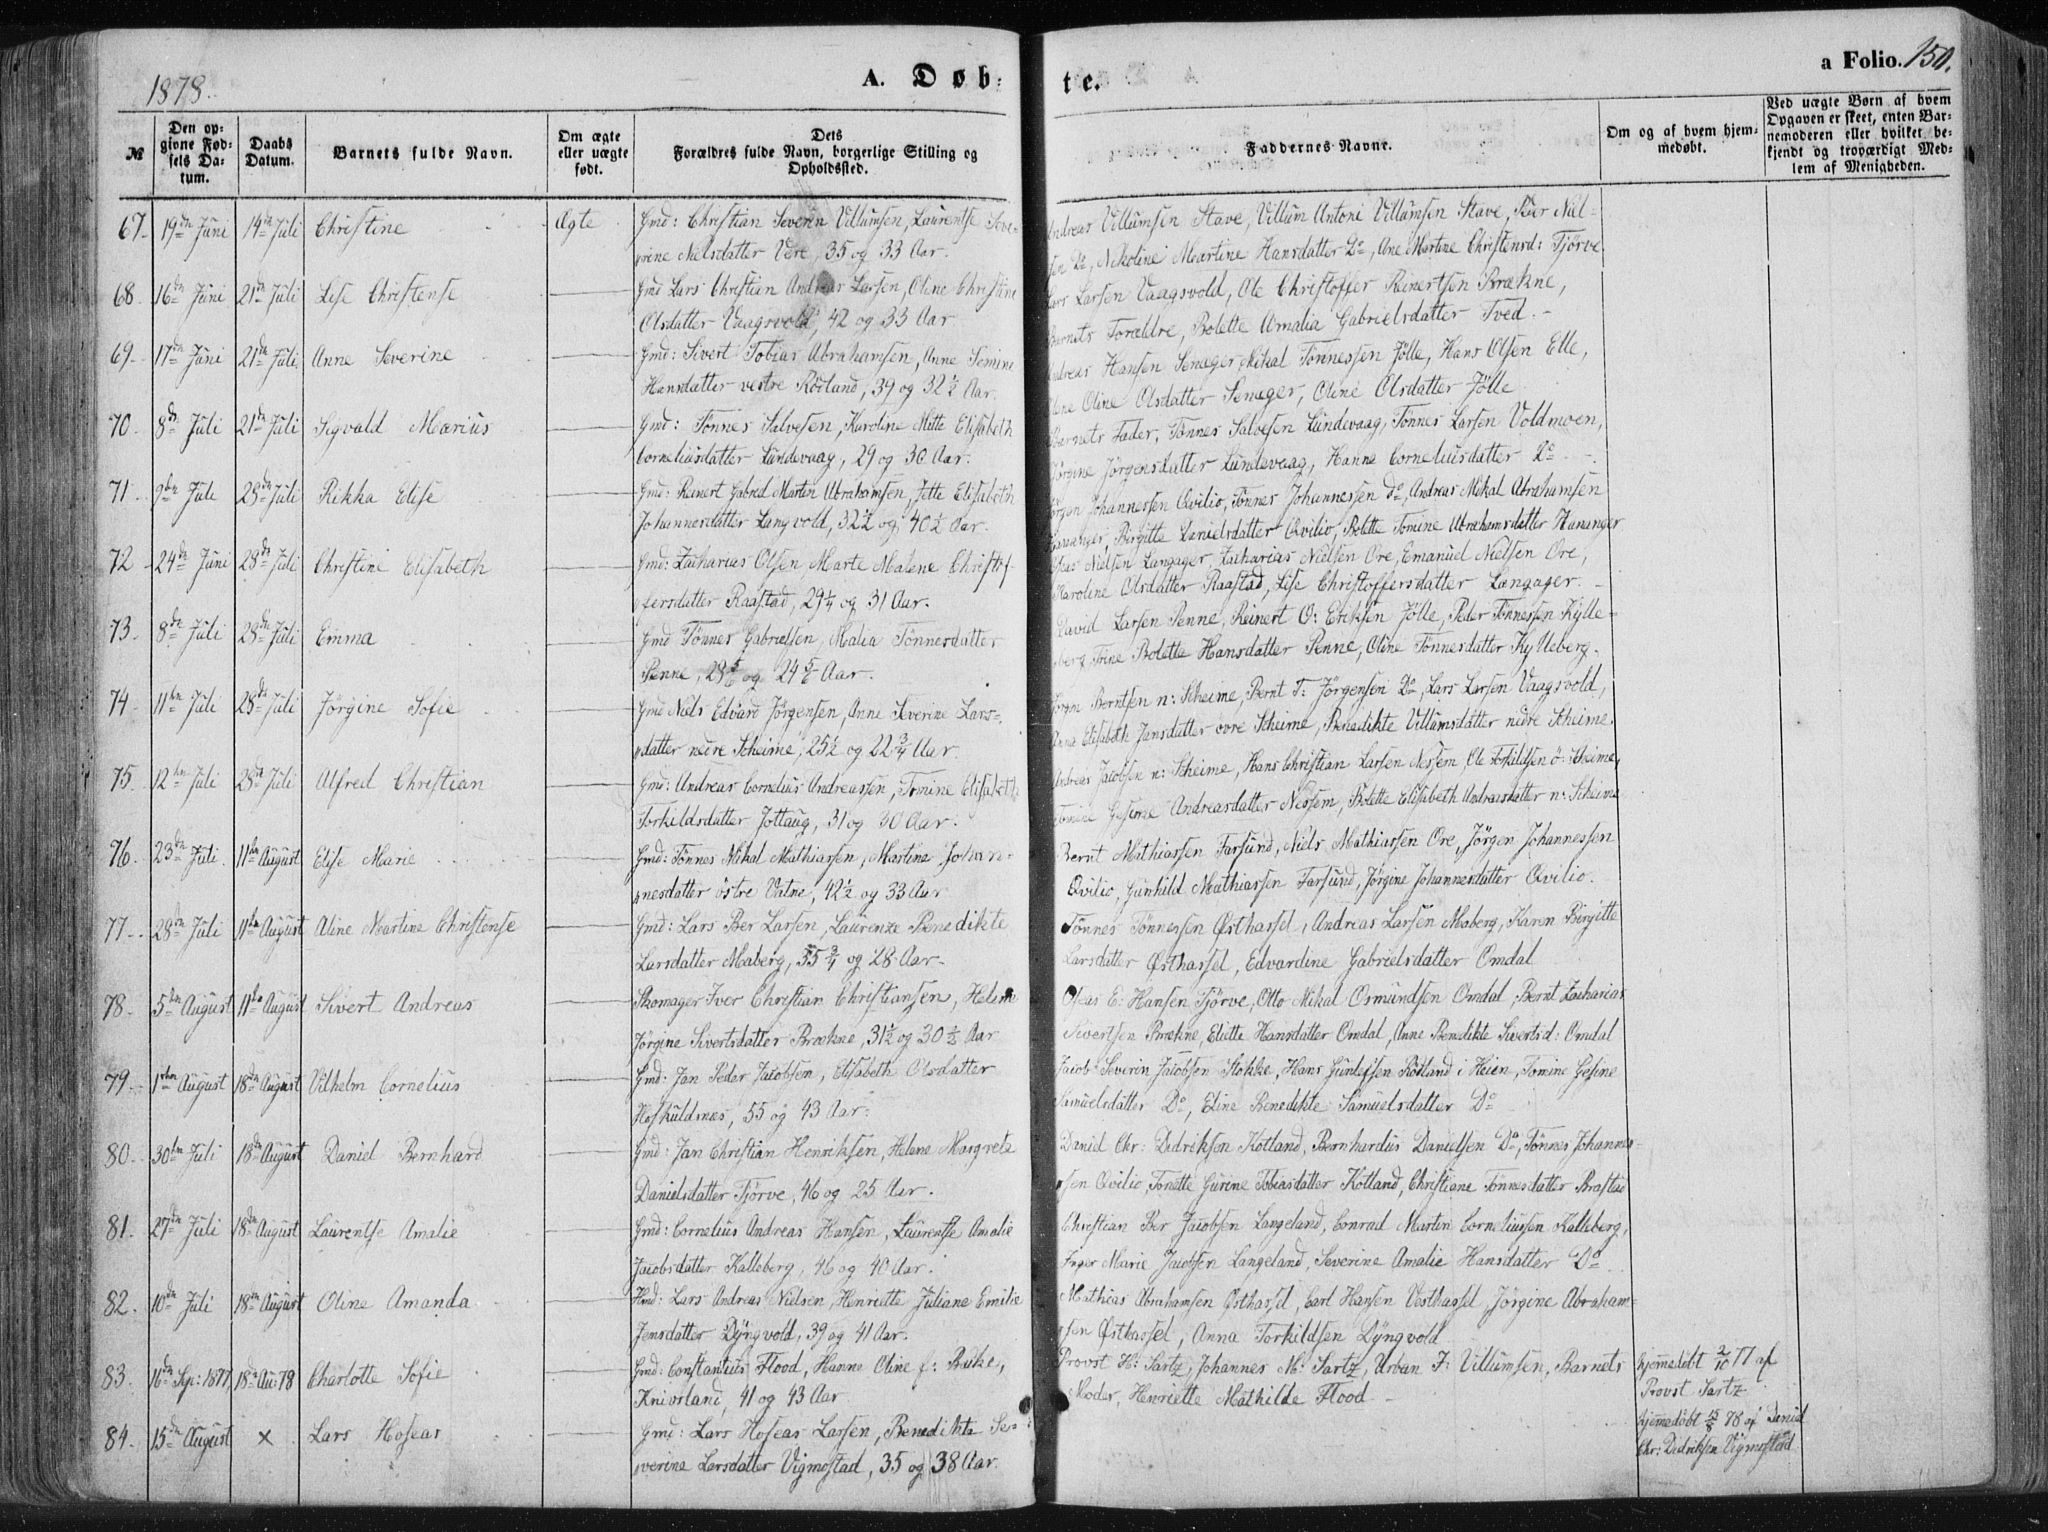 1878.
A. Døb-
te.
a Folio. 150.
№
Den op-
givne Fød-
sels Da-
tum.
Daabs
Datum.
Barnets fulde Navn.
Om ægte
eller uægte
født.
Dets
Forældres fulde Navn, borgerlige Stilling og
Opholdssted.
Faddernes Navne.
Om og af hvem hjem-
medøbt.
Ved uægte Børn af hvem
Opgaven er skeet, enten Bar-
nemoderen eller hvilket be-
kjendt og troværdigt Med-
lem af Menigheden.
67. 19de Juni 14de Juli Christine Ægte Gmd: Christian Severin Villumsen, Laurentse Seve-
rine Nielsdatter Vere, 35 og 33 Aar.
Andreas Villumsen Stave, Villum Antoni Villumsen Stave, Peer Niel-
sen Do, Nikoline Martine Hansdatter Do, Ane Martine Christensd: Tjörve.
68. 16de Juni 21de Juli Lise Christense Gmd Lars Christian Andreas Larsen, Oline Christine
Olsdatter Vaagsvold, 42 og 33 Aar
Lars Larsen Vaagsvold, Ole Christoffer Reinertsen Brækne,
Barnets Forældre, Bolette Amalia Gabrielsdatter Tved.
69. 17de Juni 21de Juli Anne Severine Gmd: Sivert Tobias Abrahamsen, Anne Semine
Hansdatter vestre Rörland, 39 og 32½ Aar.
Andreas Hansen Seneger, Mikal Tönnessen Jölle, Hans Olsen Elle,
Oline Olsdatter Seneger, Oline Olsdatter Jölle
70. 8de Juli 21de Juli Sigvald Marius Gmd: Tönnes Salvesen, Karoline Mitte Elisabeth
Corneliusdatter Lundevaag, 29 og 30 Aar.
Barnets Fader, Tönnes Salvesen Lundevaag, Tönnes Larsen Voldmoen,
Jörgine Jörgensdatter Lundevaag, Hanne Corneliusdatter Do
71. 9de Juli 28de Juli Rikka Elise Gmd: Reinert Gabriel Martin Abrahamsen, Jette Elisabeth
Johannesdatter Langvold, 32½ og 40½ Aar.
Jörgen Johannessen Qvilio, Tönnes Johannessen do, Andreas Mikal Abrahamsen
Hananger, Birgitte Danielsdatter Qvilio, Bolette Tomine Abrahamsdatter Hananger
72. 24de Juni 28de Juli Christine Elisabeth Gmd: Zacharias Olsen Marte Malene Christof-
fersdatter Raastad, 29¼ og 31 Aar.
Nielsen Langager, Zacharias Nielsen Ore, Emanuel Nielsen Ore,
Karoline Olsdatter Raastad, Lise Christoffersdatter Langager.
73. 8de Juli 28de Juli Emma Gmd Tönnes Gabrielsen, Malia Tönnesdatter
Penne, 28⅚ og 24⅚ Aar.
David Larsen Penne, Reinert O: Eriksen Jölle, Peder Tönnessen Kylle-
berg Trine Bolette Hansdatter Penne, Oline Tönnesdatter Kylleberg.
74. 11te Juli 28de Juli Jörgine Sofie Gmd Niels Edvard Jörgensen, Anne Severine Lars-
datter nedre Scheime, 25½ og 22¾ Aar.
Jörgen Berntsen n: Scheime, Bernt T: Jörgensen Do, Lars Larsen Vaagsvold,
Anna Elisabeth Jansdatter övre Scheime, Benedikte Villumsdatter nedre Scheime.
75. 12te Juli 28de Juli Alfred Christian Gmd: Andreas Cornelius Andreassen, Tomine Elisabeth
Torkildsdatter Jottaug, 31 og 30 Aar.
Andreas Jacobsen n: Scheime, Hans Christian Larsen Nessem, Ole Torkildsen ö: Scheime,
Tomine Gesine Andreasdatter Nessem, Bolette Elisabeth Andreasdatter n: Scheime
76. 23de Juli 11te August Elise Marie Gmd: Tönnes Mikal Mathiassen, Martine Johan-
nesdatter östre Vatne, 42½ og 33 Aar
Bernt Mathiassen Farsund, Niels Mathiassen Ore, Jörgen Johannessen
Qvilio, Gunhild Mathiassen Farsund, Jörgine Johannesdatter Qvilio.
77. 28de Juli 11te August Aline Martine Christense Gmd: Lars Ber Larsen, Laurenze Benedikte
Larsdatter Maberg, 35¾ og 28 Aar.
Tönnes Tönnessen Østhassel, Andreas Larsen Maberg, Karen Birgitte
Larsdatter Østhassel, Edvardine Gabrielsdatter Omdal
78. 5te August 11te August Sivert Andreas Skomager Iver Christian Christiansen, Helene
Jörgine Sivertsdatter Brækne, 31½ og 30½ Aar
Oseas E. Hansen Tjörve, Otto Mikal Osmundsen Omdal, Bernt Zacharias
Sivertsen Brækne, Eliette Hansdatter Omdal, Anne Benedikte Sivertsd: Omdal
79. 1ste August 18de August Vilhelm Cornelius Gmd: Jan Peder Jacobsen, Elisabeth Olsdatter
Höskuldnæs, 55 og 43 Aar.
Jacob Severin Jacobsen Stokke, Hans Gunlefsen Rötland i Heien, Tomine Gesine
Samuelsdatter Do, Eline Benedikte Samuelsdatter Do
80. 30te Juli 18de August Daniel Bernhard Gmd: Jan Christian Henriksen, Helene Margrete
Danielsdatter Tjörve, 46 og 25 Aar.
Daniel Chr: Didriksen Kotland, Bernhardus Danielsen Do, Tönnes Johannes-
sen Qvilio, Tonette Gurine Tobiasdatter Kotland, Christiane Tönnesdatter Brastad
81. 27de Juli 18de August Laurentse Amalie Gmd: Cornelius Andreas Hansen, Laurentse Amalie
Jacobsdatter Kalleberg, 46 og 40 Aar.
Christian Ber Jacobsen Langeland, Conrad Martin Corneliussen Kalleberg,
Inger Marie Jacobsen Langeland, Severine Amalie Hansdatter Do
82. 10de Juli 18de August Oline Amanda Hmd: Lars Andreas Nielsen, Henriette Juliane Emilie
Jensdatter Dyngvold, 39 og 41 Aar.
Mathias Abrahamsen Østhassel, Carl Hansen Vesthassel, Jörgine Abraham-
sen Østhassel, Anna Torkildsen Dyngvold
83. 16de Sep: 1877, 18de Au: 78 Charlotte Sofie Gmd: Constantius Flood, Hanne Oline f: Bukke,
Kniorland, 41 og 43 Aar
Provst H: Sartz, Johannes M: Sartz, Urban F: Villumsen, Barnets
Moder, Henriette Mathilde Flood
hjemmedöbt 2/10 77 af
Provst Sartz
84. 15de August × Lars Hoseas Gmd: Lars Hoseas Larsen, Benedikte Se-
verine Larsdatter Vigmostad, 35 og 38 Aar.
hjemmedöbt 15/8 78 af Daniel
Chr: Didriksen Vigmostad